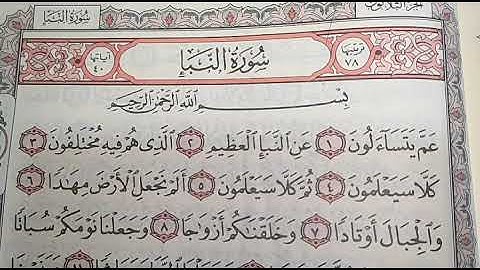 سُورَةُ النَّبَإِ
الجُزْءُ الثَّلَاثُونَ
ترتيبها ٧٨
سُورَةُ النَّبَإِ
آياتها ٤٠
بِسْمِ ٱللَّهِ ٱلرَّحْمَٰنِ ٱلرَّحِيمِ
عَمَّ يَتَسَآءَلُونَ ١ عَنِ ٱلنَّبَإِ ٱلْعَظِيمِ ٢ ٱلَّذِى هُمْ فِيهِ مُخْتَلِفُونَ ٣
كَلَّا سَيَعْلَمُونَ ٤ ثُمَّ كَلَّا سَيَعْلَمُونَ ٥ أَلَمْ نَجْعَلِ ٱلْأَرْضَ مِهَٰدًا ٦
وَٱلْجِبَالَ أَوْتَادًا ٧ وَخَلَقْنَٰكُمْ أَزْوَٰجًا ٨ وَجَعَلْنَا نَوْمَكُمْ سُبَاتًا